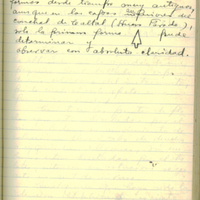 formas desde tiempo muy antiguo,
aunque en las capas inferiores del
conchal de Cal (Huaso Parado),
solo la primera forma pude
determinar y
observar con absoluta claridad.